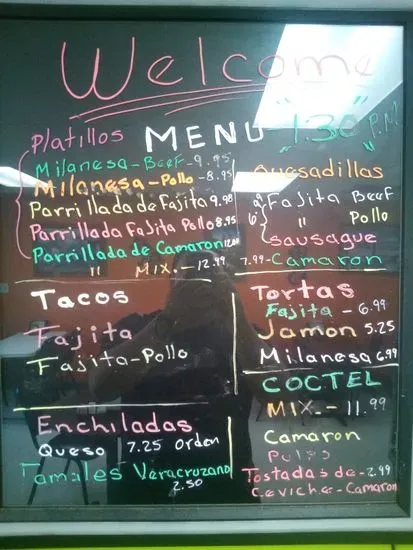 Welcome
MENU "1:30" P.M
Platillos
Milanesa - Beef - 9.95
Milanesa - Pollo - 8.95
Parrillada de Fajita 9.98
Parrillada Fajita Pollo 8.95
Parrillada de Camaron 12.00
" MIX. - 12.99
Quesadillas
Fajita Beef
" Pollo
Sausague
7.99 - Camaron
Tacos
Fajita
Fajita - Pollo
Tortas
Fajita - 6.99
Jamon 5.25
Milanesa 6.99
Enchiladas
Queso 7.25 Orden
Tamales Veracruzano
2.50
COCTEL
MIX. - 11.99
Camaron
Pulpo
Tostadas de - 2.99
Ceviche - Camaron